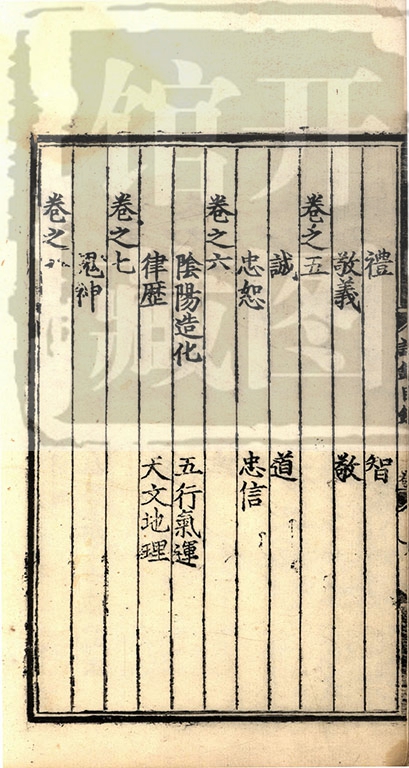 禮 智
敬義 敬
卷之五
誠 道
忠恕 忠信
卷之六
陰陽造化 五行氣運
律歷 天文地理
卷之七
鬼神
卷之八
开图
馆藏